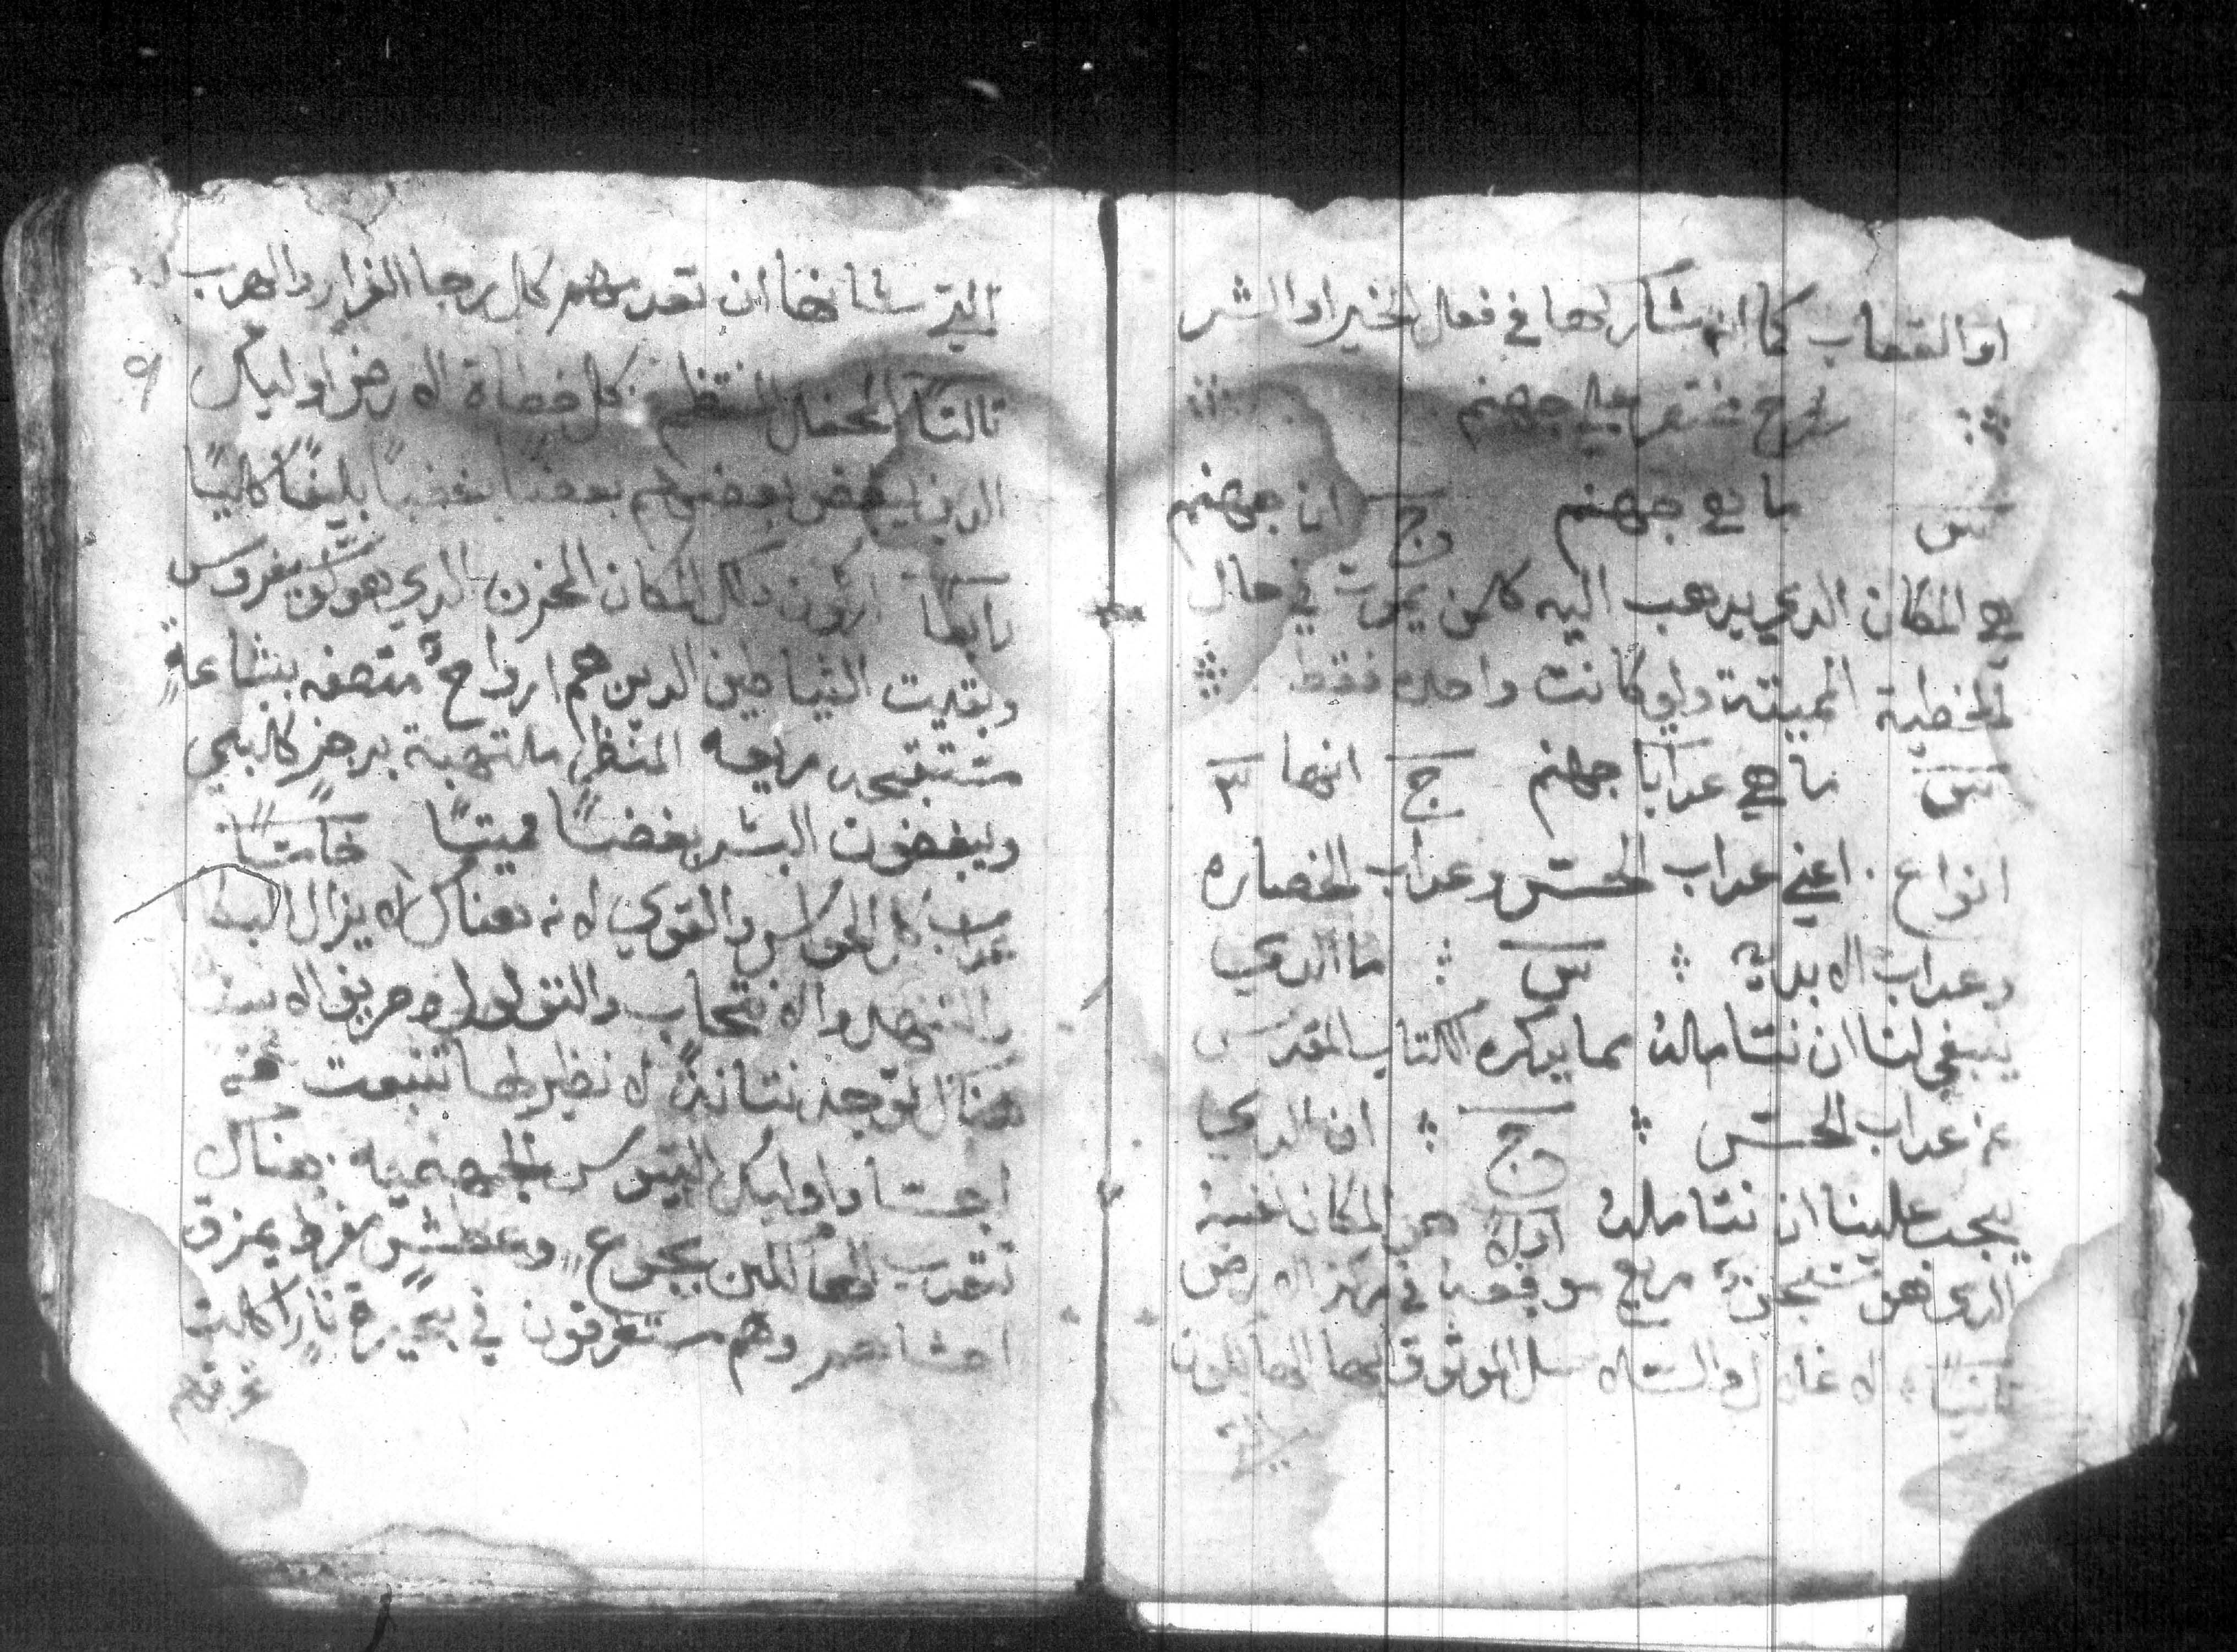 او القصاب كما انه شاركها في فعل الخير او الشر
شرح مختصر على جهنم
س ما هي جهنم ج ان جهنم
هي المكان الدي يدهب اليه كلمن يموت في حال
الخطية المميتة ولو كانت واحده فقط
س ما هي عدابات جهنم ج انها ٣
انواع اعني عداب الحس وعداب الخصاره
وعداب الابديه س ما الدي
ينبغي لنا ان نتامله مما يدكره الكتاب المقدس
عن عداب الحس ج ان الدي
يجب علينا ان نتامله اولاً هو المكان
الدي هو مريع في مركز الارض
ثانياً الاغلال والسلاسل الموثوق بها الهالكون
التي
التي شانها ان تعدمهم كل رجا الفرار والهرب
ثالثاً المحفل المنتظم كل فضاة الارض اوليك
الدين يبغض بعضهم بعضاً بغضاً بليغاً كلياً
رابعاً اركون دلك المكان المحزن الدي هو لوسيفوروس
وبقيت الشياطين الدين هم ارواح متصفه بشاعة
مستقبحه مريعه المنظر ملتهبة برجز كلبي
ويبغضون البشر بغضاً مميتاً خامساً
عداب كل الحواس والقوي لانه هناك لا يزال البكا
والتنهد والانتحاب والولوله وصريف الاسنان
هناك توجد نتانة لا نظير لها تنبعت من
اجساد اوليك التيوس الجهنميه هناك
تتعدب الهالكين بجوع وعطش مفرط يمزق
احشاهم وهم مستغرقون في بحيرة نار اكلت